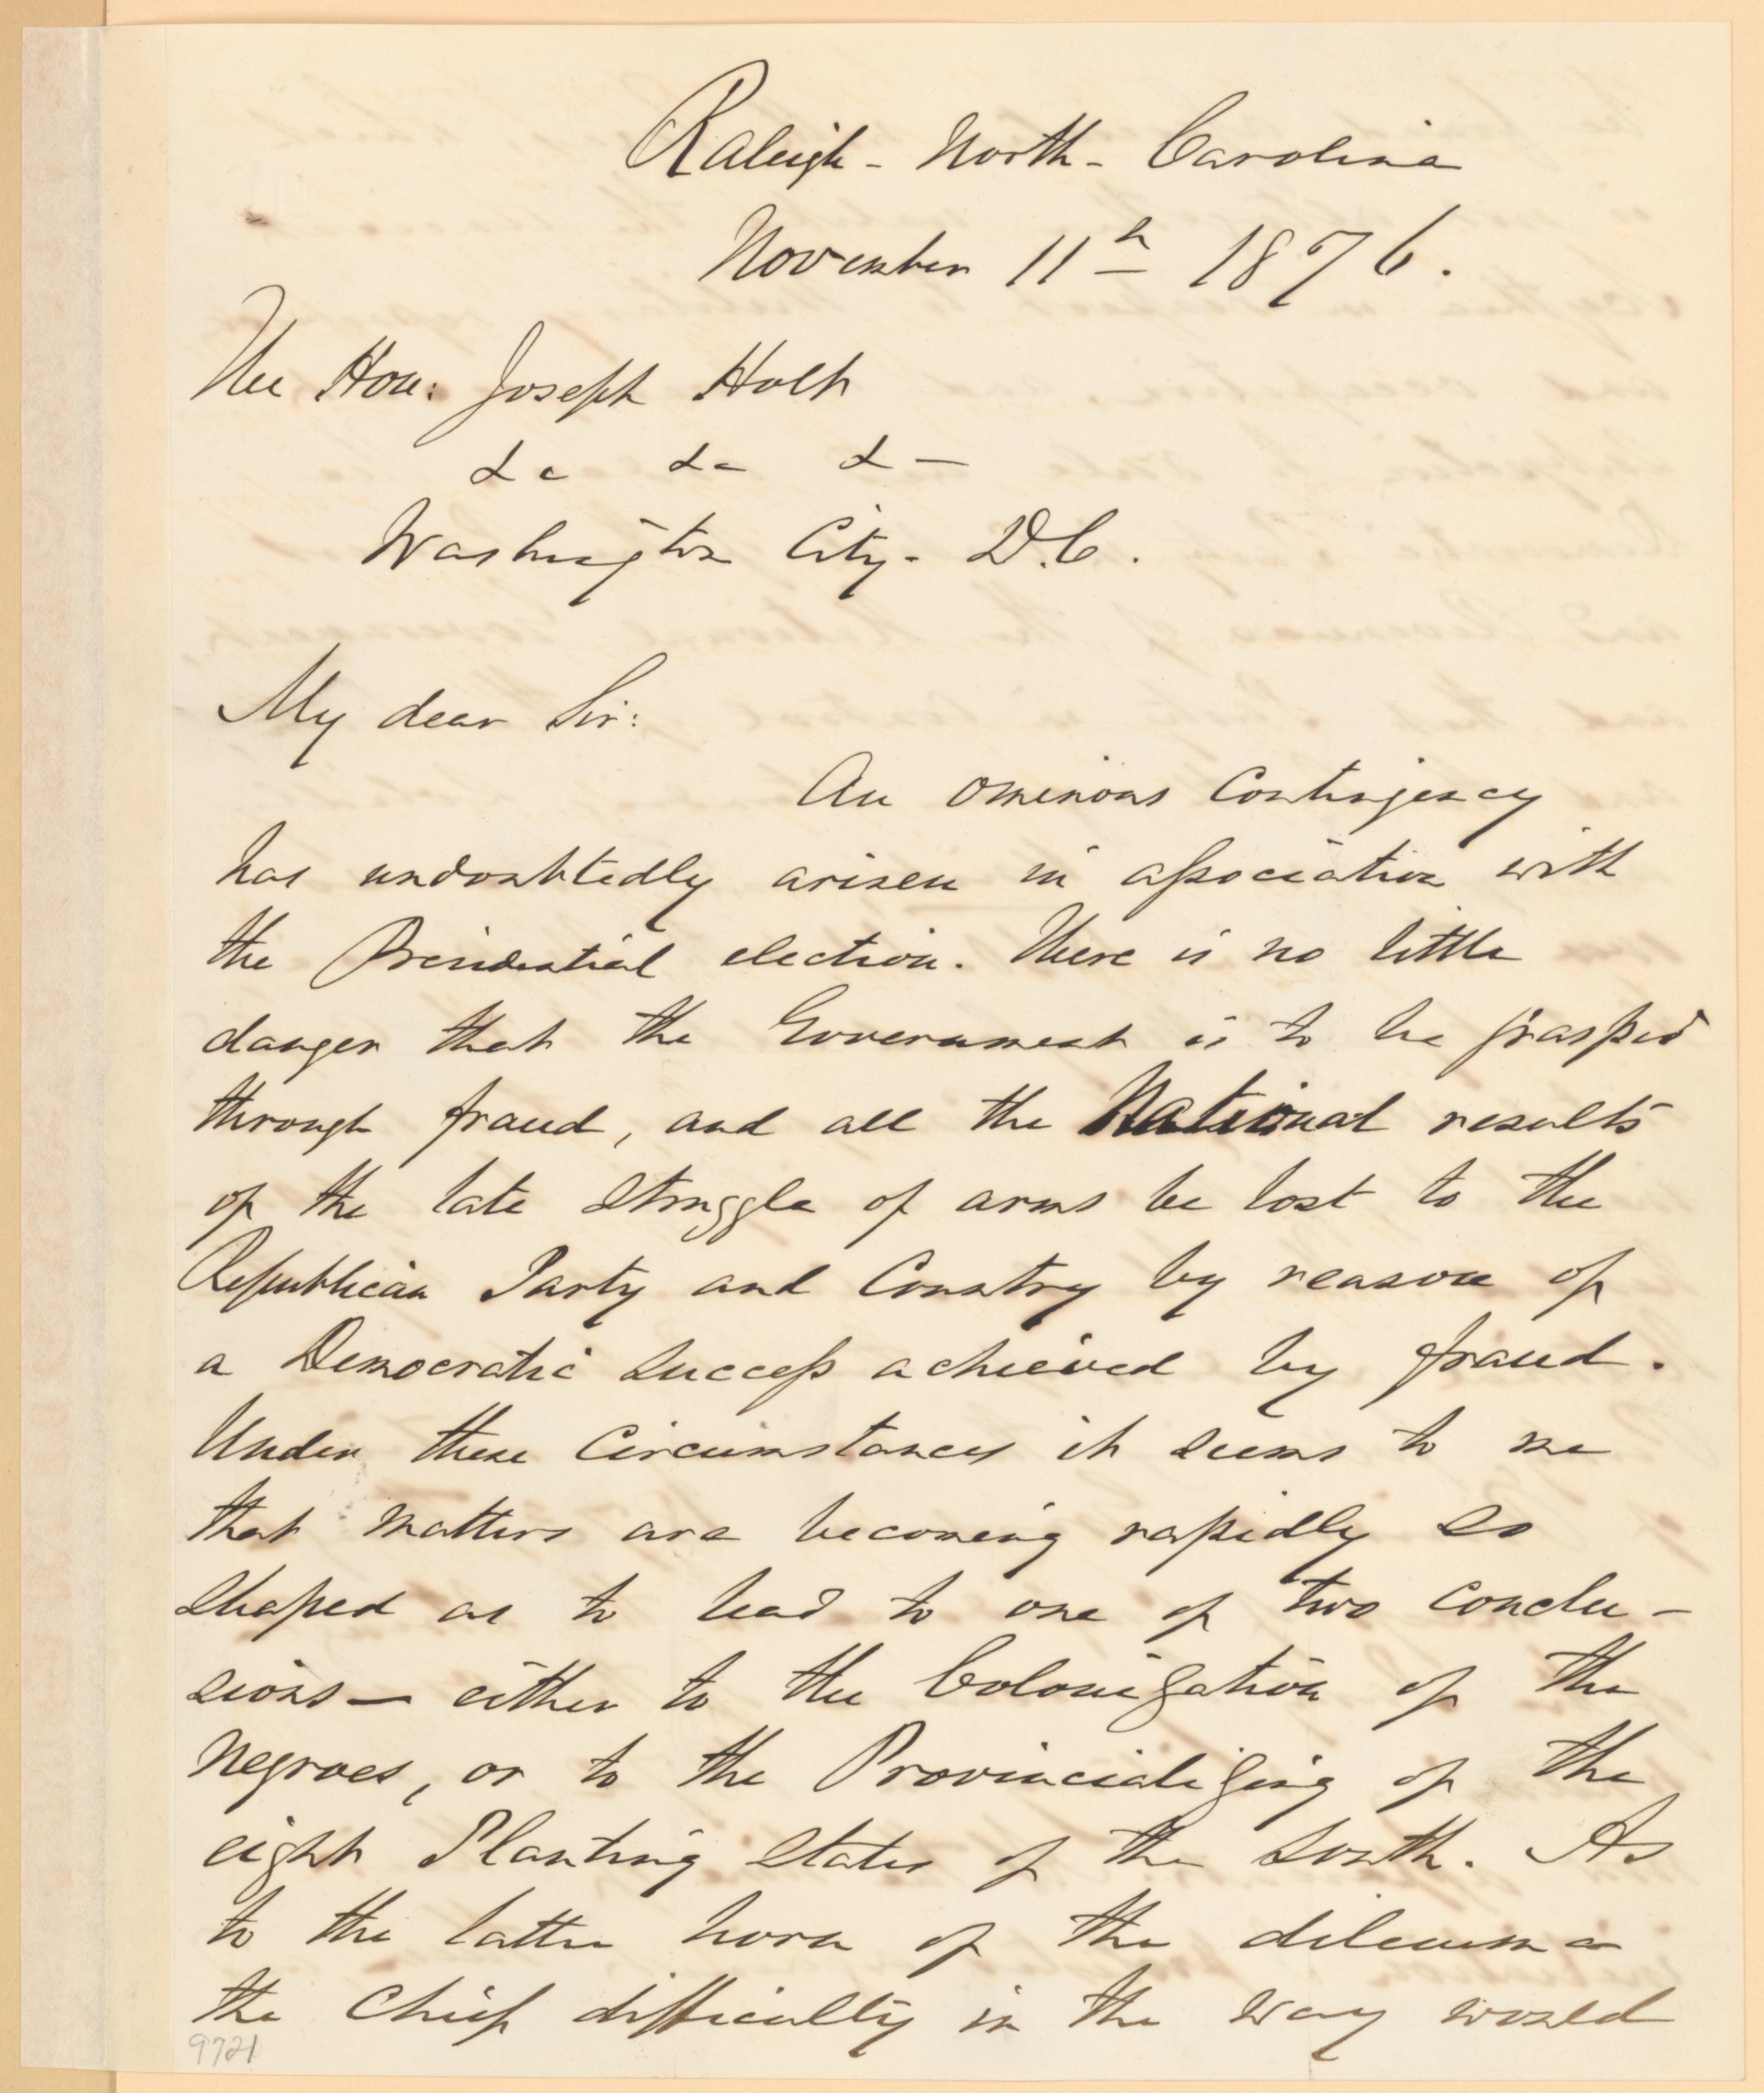 Raleigh - North - Carolina
November 11th 1876.
The Hon: Joseph Holt
&c &c &—
Washington City - D.C.
My dear Sir:
An ominous contingency
has undoubtedly arisen in association with
the Presidential election. There is no little
danger that the Government is to be grasped
through fraud, and all the National results
of the late struggle of arms be lost to the
Republican Party and Country by reason of
a Democratic success achieved by fraud.
Under these circumstances it seems to me
that matters are becoming rapidly so
shaped as to lead to one of two conclu-
sions — either to the Colonization of the
negroes, or to the Provincializing of the
eight Planting States of the South. As
to the latter horn of the dilemma
the chief difficulty in the way would
9721